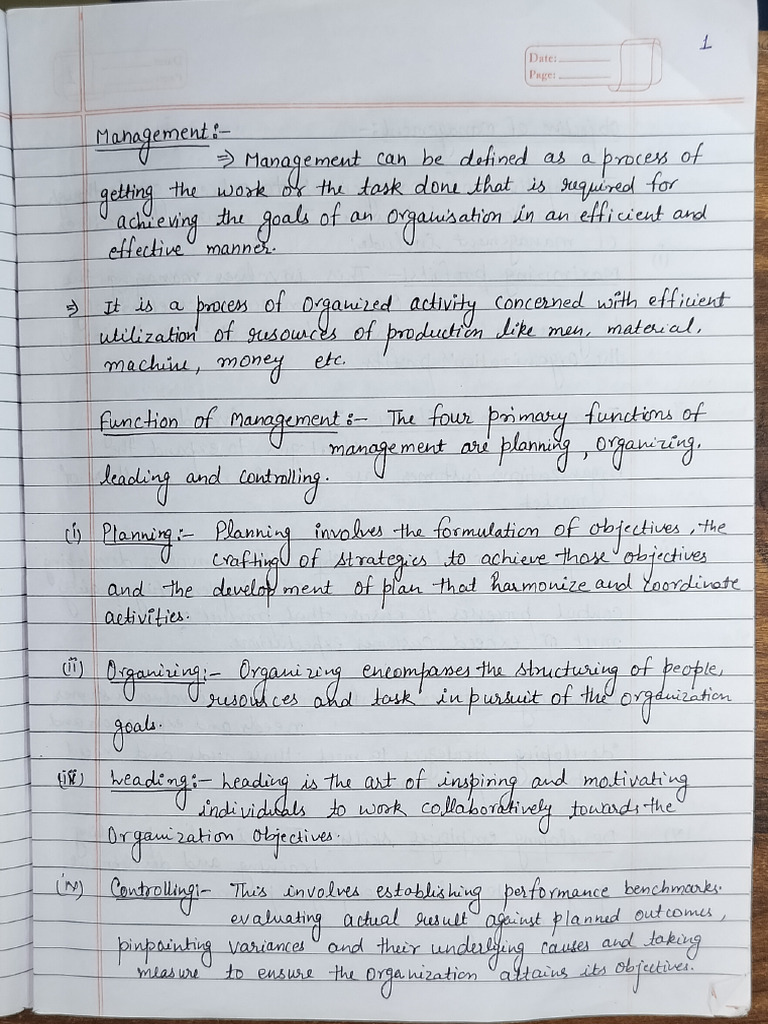 1
Date:
Page:
Management:-
⇒ Management can be defined as a process of
getting the work or the task done that is required for
achieving the goals of an organisation in an efficient and
effective manner.
⇒ It is a process of organized activity concerned with efficient
utilization of resources of production like men, material,
machine, money etc.
Function of Management:- The four primary functions of
management are planning, organizing,
leading and controlling.
(i) Planning:- Planning involves the formulation of objectives, the
crafting of strategies to achieve those objectives
and the development of plan that harmonize and coordinate
activities.
(ii) Organizing:- Organizing encompasses the structuring of people,
resources and task in pursuit of the organization
goals.
(iii) Leading:- Leading is the art of inspiring and motivating
individuals to work collaboratively towards the
organization objectives.
(iv) Controlling:- This involves establishing performance benchmarks.
evaluating actual result against planned outcomes,
pinpointing variances and their underlying causes and taking
measure to ensure the organization attains its objectives.